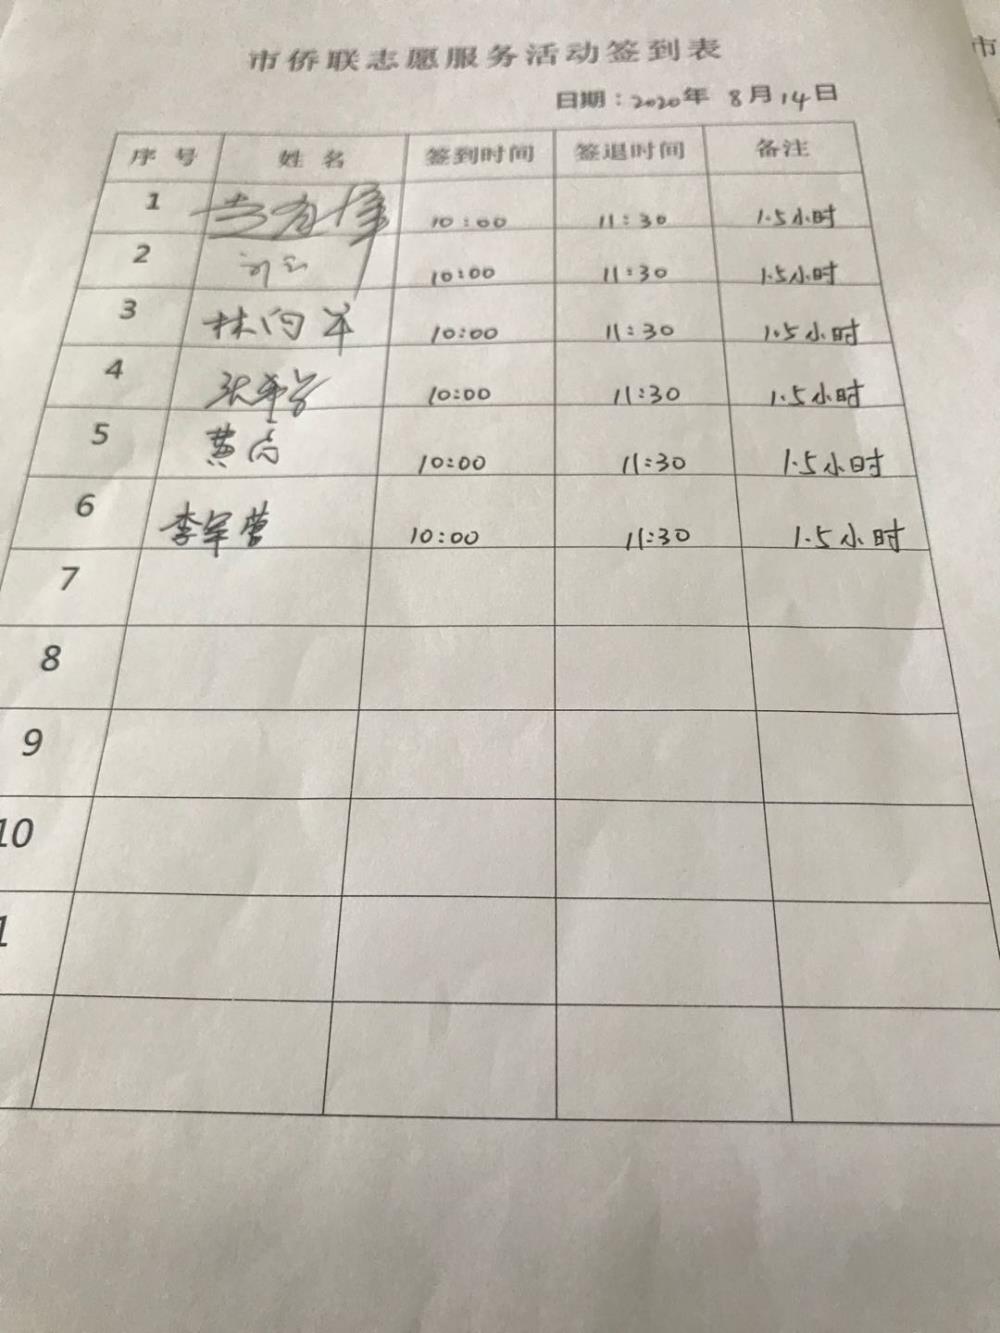 市侨联志愿服务活动签到表
日期：2020年 8月14日
序号 姓名 签到时间 签退时间 备注
1 10:00 11:30 1.5小时
2 10:00 11:30 1.5小时
3 林向 10:00 11:30 1.5小时
4 张 10:00 11:30 1.5小时
5 黄 10:00 11:30 1.5小时
6 李军营 10:00 11:30 1.5小时
7
8
9
10
1
市